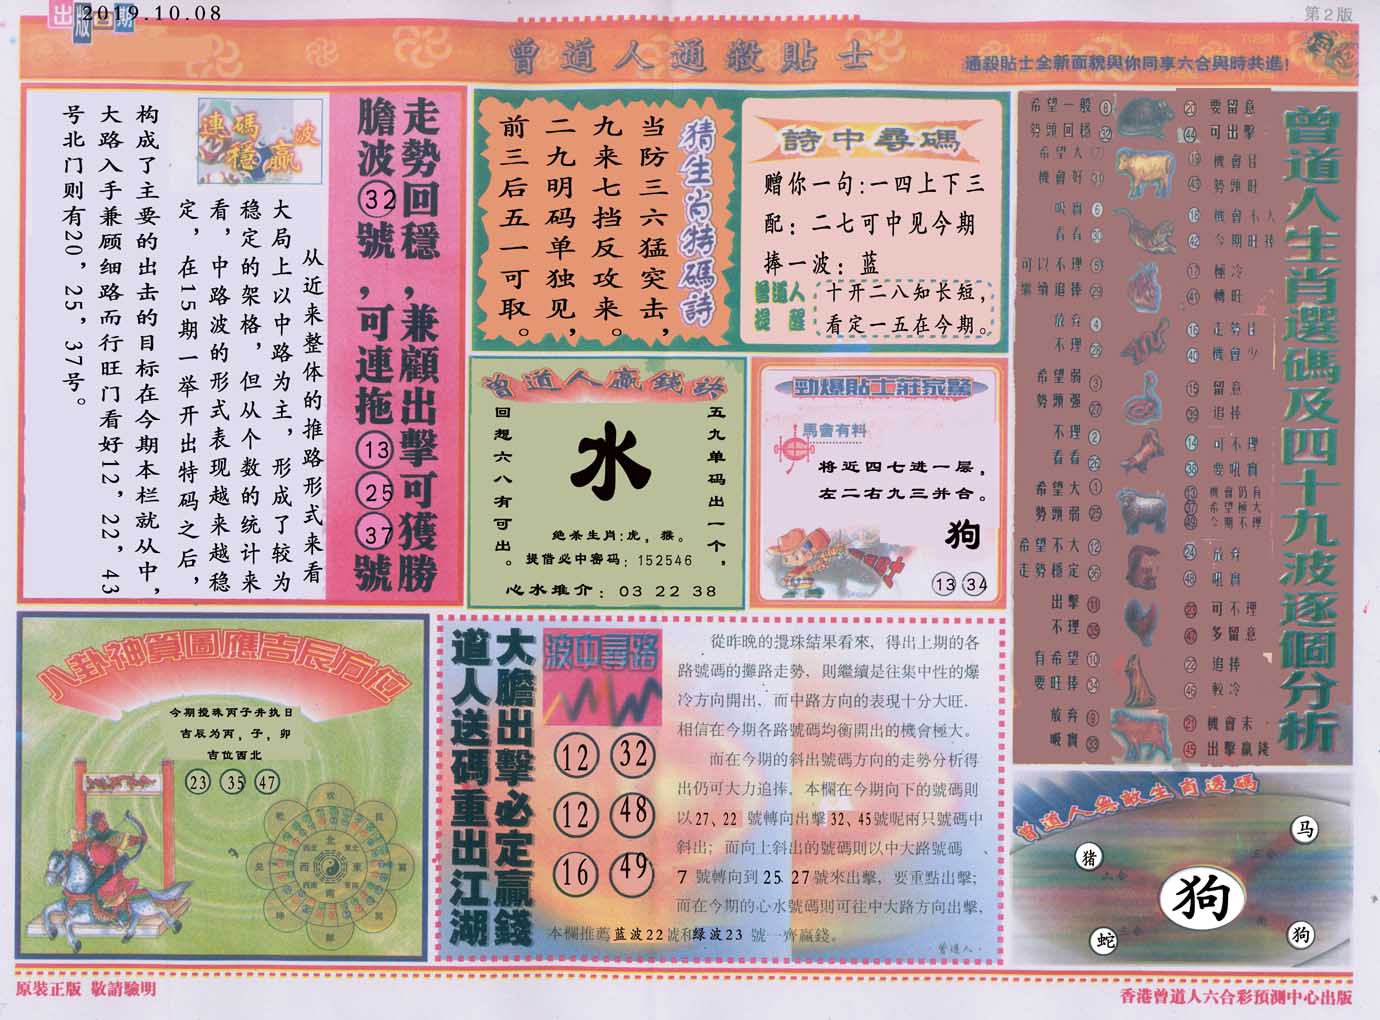 出版日期
2019.10.08
第2版
曾道人通殺貼士
通殺貼士全新面貌與你同享六合與時共進!
走勢回穩,兼顧出擊可獲勝
膽波32號,可連拖132537號
連碼穩贏波
从近来整体的推路形式来看
大局上以中路为主,形成了较为
稳定的架格,但从个数的统计来
看,中路波的形式表现越来越稳
定,在15期一举开出特码之后,
构成了主要的出击的目标在今期本栏就从中,
大路入手兼顾细路而行旺门看好12,22,43
号北门则有20,25,37号。
猜生肖特碼詩
当防三六猛突击,
九来七挡反攻来。
二九明码单独见,
前三后五一可取。
詩中尋碼
赠你一句:一四上下三
配:二七可中见今期
捧一波:蓝
曾道人提醒
十开二八知长短,
看定一五在今期。
曾道人贏錢詩
五九单码出一个,
回想六八有可出。
水
绝杀生肖:虎,猴。
提借必中密码:152546
心水推介:03 22 38
勁爆貼士莊家驚
馬會有料
将近四七进一层,
左二右九三并合。
狗
13 34
曾道人生肖選碼及四十九波逐個分析
希望一般 8
20 要留意
勢頭回穩 32
44 可出擊
希望大
19
機會好
43 勢頭旺
吸實 6
18 機會不大
看看 30
42 今期旺捧
可以不理 5
17 極冷
繼續追捧 29
41 轉旺
放弃 4
16
不理
40 機會少
希望弱 3
15 留意
勢頭强 27
39 追捧
不理 2
14 可不理
看看 26
38 要吼實
希望大 1
13 機會仍有
37 希望極大
勢頭弱 25
49 今期不理
希望不大 12
24 放弃
走勢穩定 36
48 吼實
出擊 11
23 可不理
不理 35
47 多留意
有希望 10
22 追捧
要旺捧 34
46 較冷
放弃 9
21 機會末
吸實 33
45 出擊贏錢
八卦神算圖應吉辰方位
今期搅珠丙子井执日
吉辰为丙,子,卯
吉位西北
23 35 47
北
西 東
南
大膽出擊必定贏錢
道人送碼重出江湖
波中尋路
12 32
12 48
16 49
從昨晚的攪珠結果看來,得出上期的各
路號碼的攤路走勢,則繼續是往集中性的爆
冷方向開出,而中路方向的表現十分大旺.
相信在今期各路號碼均衡開出的機會極大。
而在今期的斜出號碼方向的走勢分析得
出仍可大力追捧,本欄在今期向下的號碼則
以27、22 號轉向出擊32、45號呢兩只號碼中
斜出;而向上斜出的號碼則以中大路號碼、
7 號轉向到25 27號來出擊,要重點出擊;
而在今期的心水號碼則可往中大路方向出擊,
本欄推薦蓝波22號和绿波23 號一齊贏錢。
曾道人.
曾道人無敵生肖透碼
马
猪
狗
蛇
狗
原裝正版 敬請驗明
香港曾道人六合彩預測中心出版